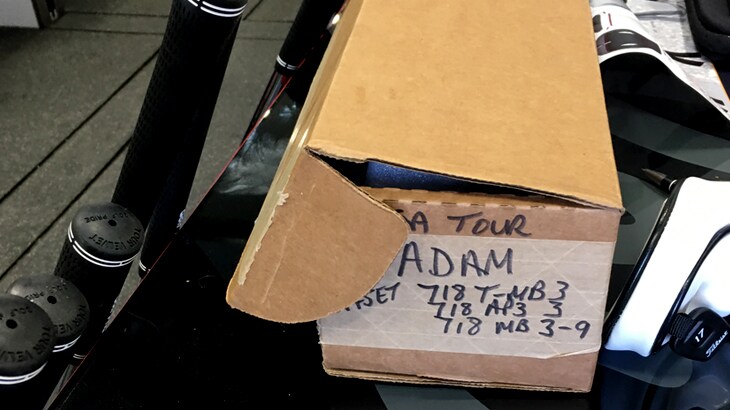 A TOUR
ADAM
SET 718 T-MB 3
718 AP3 3
718 MB 3-9
TOUR VELVET
17